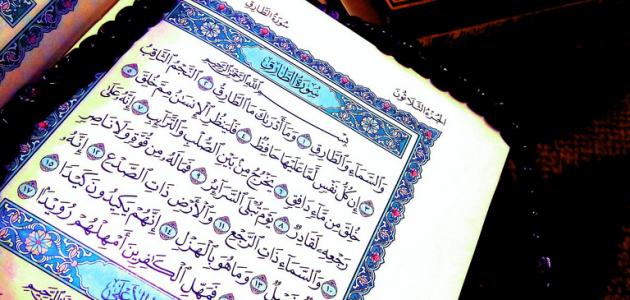 سُورَةُ الطَّارِقِ
الجُزْءُ الثَّلَاثُونَ
سُورَةُ الطَّارِقِ
بِسْمِ اللَّهِ الرَّحْمَٰنِ الرَّحِيمِ
وَالسَّمَاءِ وَالطَّارِقِ ١ وَمَا أَدْرَىٰكَ مَا الطَّارِقُ ٢ النَّجْمُ الثَّاقِبُ
٣ إِن كُلُّ نَفْسٍ لَّمَّا عَلَيْهَا حَافِظٌ ٤ فَلْيَنظُرِ الْإِنسَٰنُ مِمَّ خُلِقَ ٥
خُلِقَ مِن مَّاءٍ دَافِقٍ ٦ يَخْرُجُ مِن بَيْنِ الصُّلْبِ وَالتَّرَائِبِ ٧ إِنَّهُ عَلَىٰ
رَجْعِهِ لَقَادِرٌ ٨ يَوْمَ تُبْلَى السَّرَائِرُ ٩ فَمَا لَهُ مِن قُوَّةٍ وَلَا نَاصِرٍ
١٠ وَالسَّمَاءِ ذَاتِ الرَّجْعِ ١١ وَالْأَرْضِ ذَاتِ الصَّدْعِ ١٢ إِنَّهُ
١٣ وَمَا هُوَ بِالْهَزْلِ ١٤ إِنَّهُمْ يَكِيدُونَ كَيْدًا ١٥
فَمَهِّلِ الْكَٰفِرِينَ أَمْهِلْهُمْ رُوَيْدًا ١٧
الأَعْلَىٰ